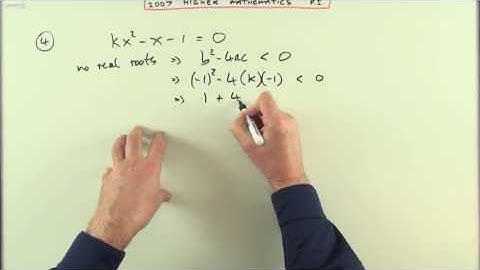 2007 HIGHER MATHEMATICS P.I
④ kx² - x - 1 = 0
no real roots ⇒ b² - 4ac < 0
⇒ (-1)² - 4(k)(-1) < 0
⇒ 1 + 4